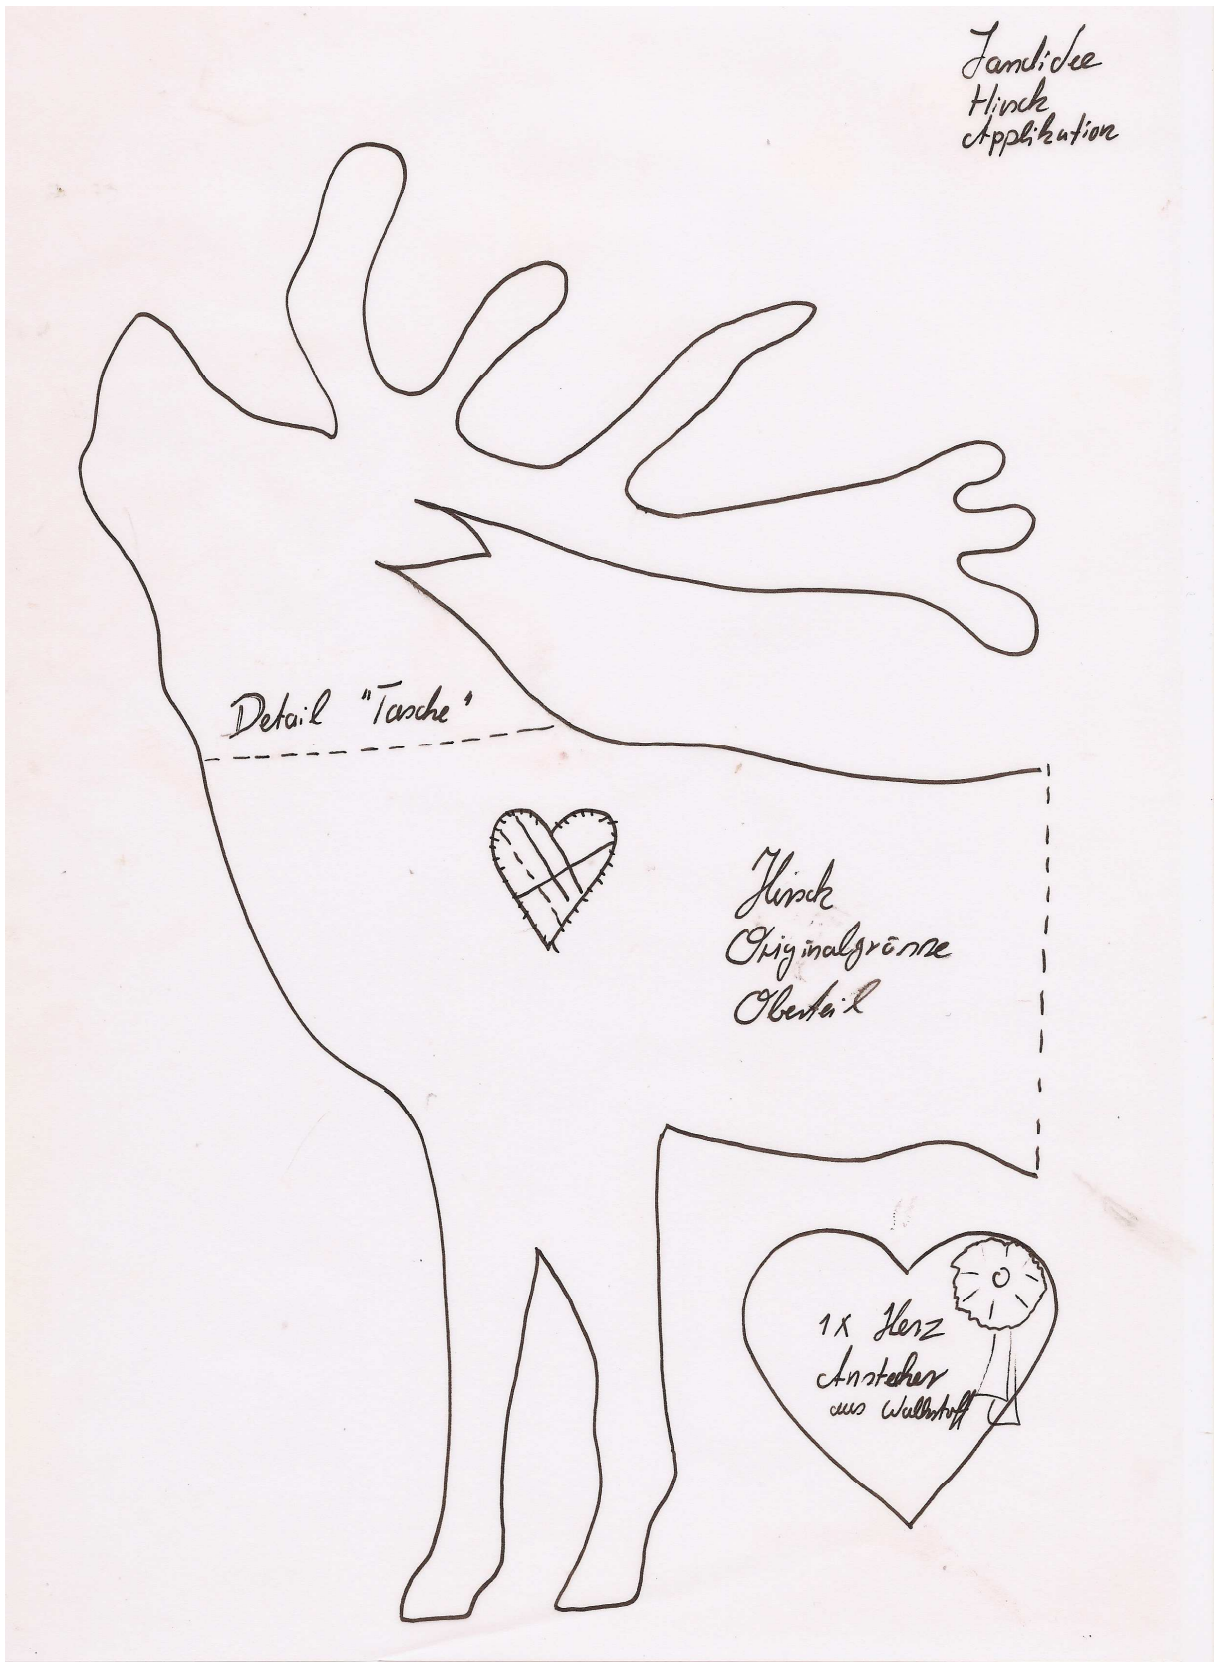 Landidee
Hirsch
Applikation
Detail "Tasche"
Hirsch
Originalgrösse
Oberteil
1x Herz
Anstecker
aus Walkstoff